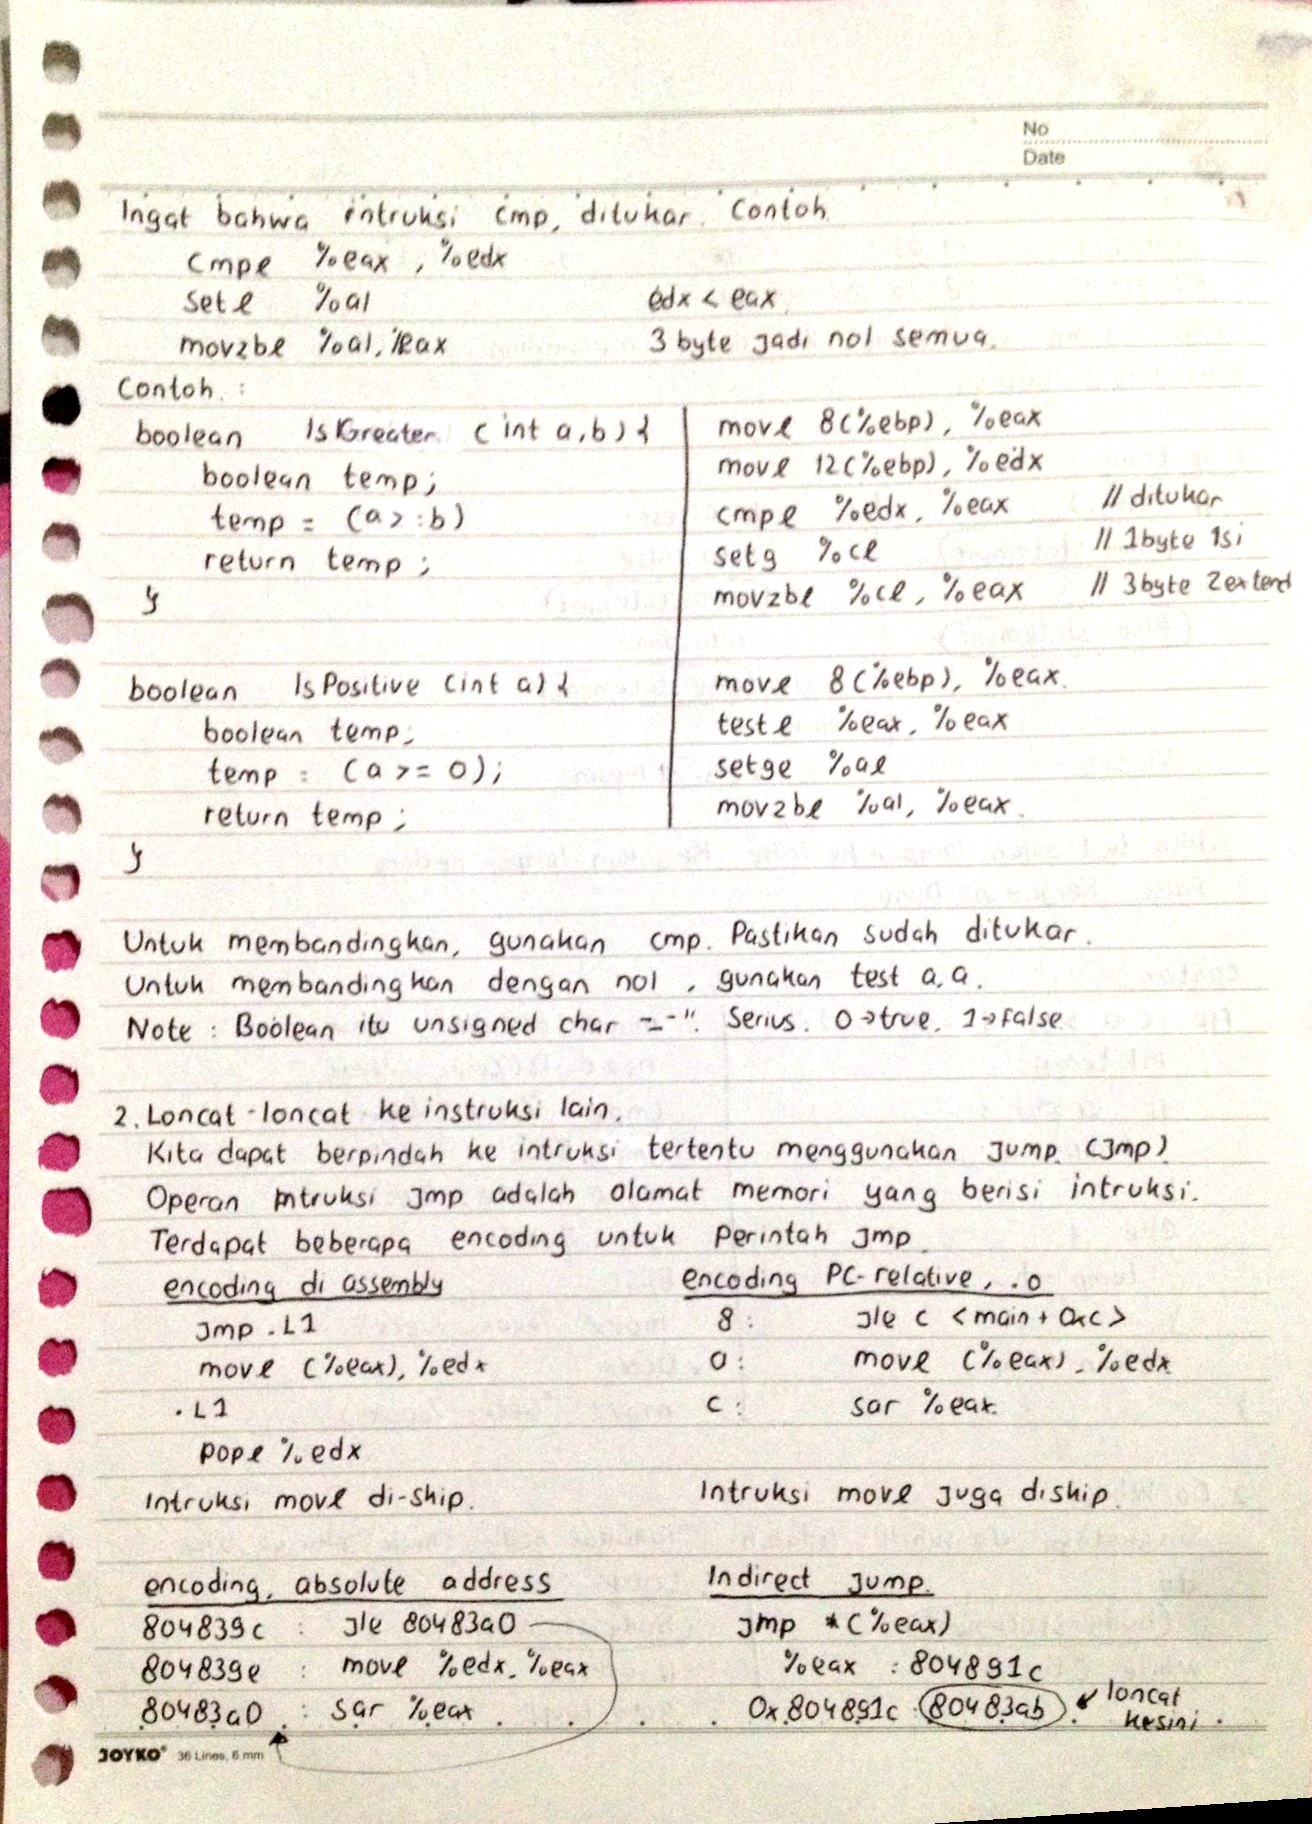 No
Date
Ingat bahwa intruksi cmp, ditukar. Contoh
cmpl %eax, %edx
setl %al edx < eax
movzbl %al, %eax 3 byte jadi nol semua.
Contoh :
boolean IsGreater (int a,b) {
boolean temp;
temp = (a > b)
return temp;
}
movl 8(%ebp), %eax
movl 12(%ebp), %edx
cmpl %edx, %eax // ditukar
setg %cl // 1byte isi
movzbl %cl, %eax // 3byte Zextend
boolean IsPositive (int a) {
boolean temp;
temp = (a >= 0);
return temp;
}
movl 8(%ebp), %eax.
testl %eax, %eax
setge %al
movzbl %al, %eax.
Untuk membandingkan, gunakan cmp. Pastikan sudah ditukar.
Untuk membandingkan dengan nol, gunakan test a,a.
Note : Boolean itu unsigned char =_=". Serius. 0→true. 1→false
2. Loncat-loncat ke instruksi lain.
Kita dapat berpindah ke intruksi tertentu menggunakan Jump (Jmp)
Operan intruksi Jmp adalah alamat memori yang berisi intruksi.
Terdapat beberapa encoding untuk perintah Jmp.
encoding di assembly
jmp .L1
movl (%eax), %edx
.L1
popl %edx
Intruksi movl di-skip.
encoding PC-relative, .o
8: jle c <main + 0xc>
a: movl (%eax), %edx
c: sar %eax.
Intruksi movl juga diskip.
encoding, absolute address
804839c : jle 80483a0
804839e : movl %edx, %eax
80483a0 : sar %eax
Indirect jump.
jmp *(%eax)
%eax : 804891c
0x804891c : 80483ab loncat
kesini.
JOYKO® 36 Lines, 6 mm